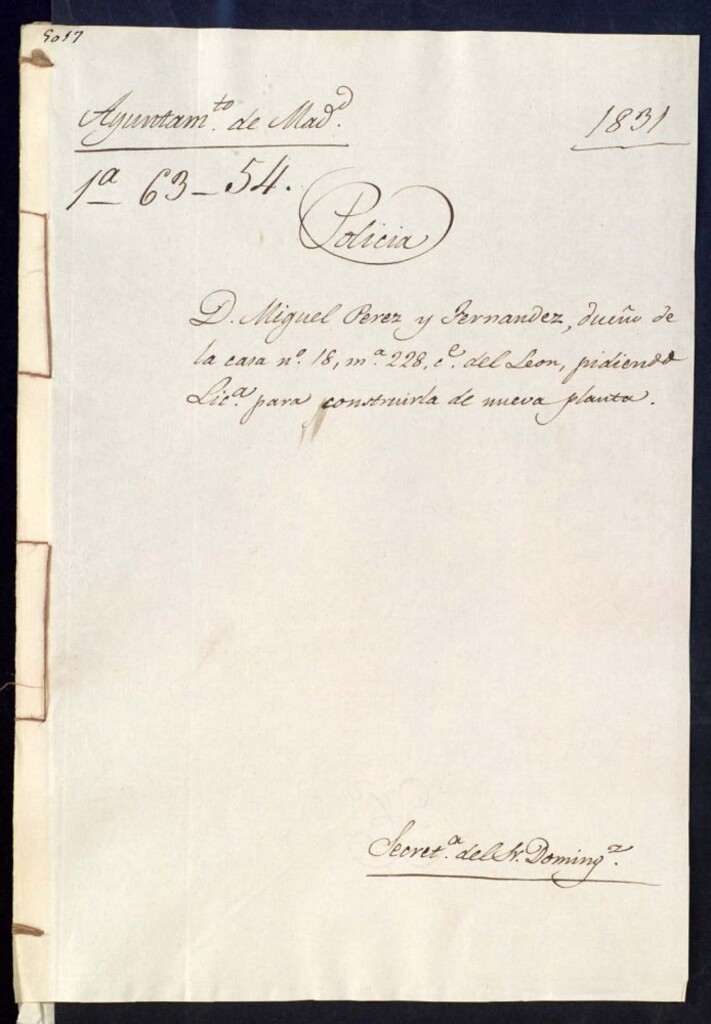 5017
Ayuntam.to de Mad.d
1831
1a 63-54.
Policia
D. Miguel Perez y Fernandez, dueño de
la casa n.o 18, m.a 228, c.e del Leon, pidiendo
Lic.a para construirla de nueva planta.
Secret.a del Sr. Doming.z